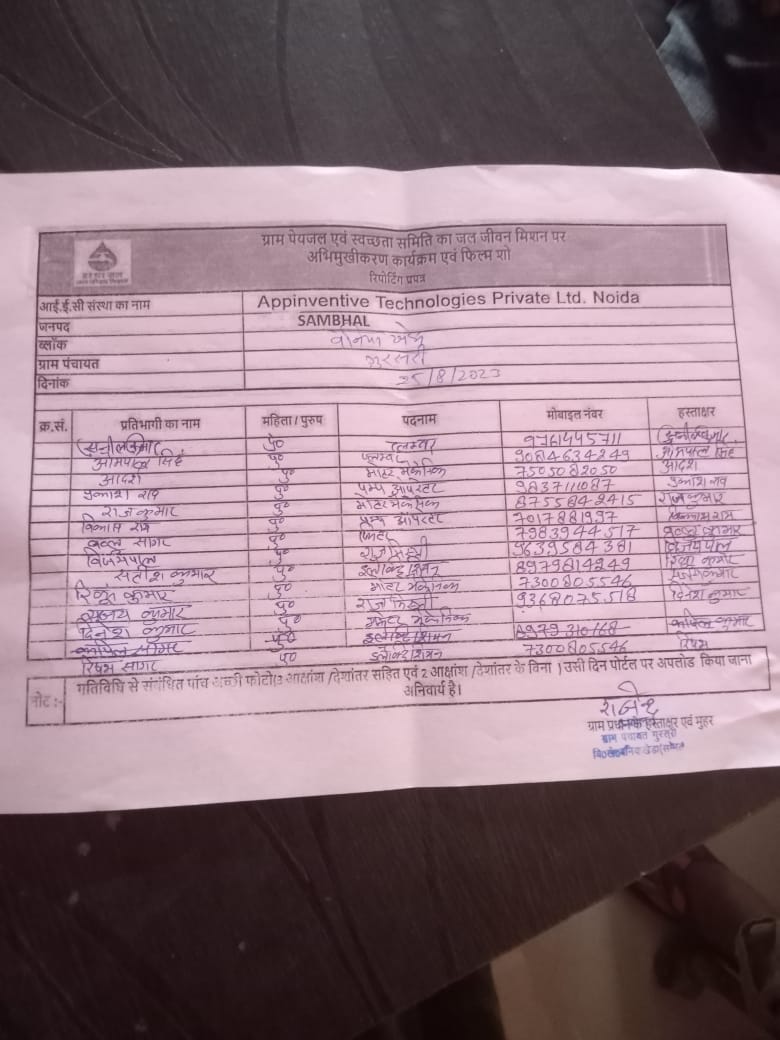 ग्राम पेयजल एवं स्वच्छता समिति का जल जीवन मिशन पर
अभिमुखीकरण कार्यक्रम एवं फिल्म शो
रिपोर्टिंग प्रपत्र
हर घर जल
आई.ई.सी संस्था का नाम Appinventive Technologies Private Ltd. Noida
जनपद SAMBHAL
ब्लॉक
ग्राम पंचायत
दिनांक 25/8/2023
क्र.सं. प्रतिभागी का नाम महिला / पुरुष पदनाम मोबाइल नंबर हस्ताक्षर
सुनील कुमार पु० प्लम्बर 9761445711
ओमपाल सिंह पु० प्लम्बर 9084634249 ओमपाल सिंह
आदेश पु० मोटर मैकेनिक 7505082050 आदेश
प्रकाश राव पु० पम्प आपरेटर 9837111087 प्रकाश राव
राज कुमार पु० मोटर मैकेनिक 8755842415 राज कुमार
विकास राव पु० पम्प आपरेटर 7017881997
सागर पु० फिटर 7983944517
विजयपाल पु० राज मिस्त्री 9639584381 विजयपाल
सतीश कुमार पु० इलैक्ट्रिशियन 8979814249
रिंकू कुमार पु० मोटर मैकेनिक 7300805546
कुमार पु० राज मिस्त्री 9368075518 दिनेश कुमार
दिनेश कुमार पु० मोटर मैकेनिक
कपिल सागर पु० इलैक्ट्रिशियन 8979310168 कपिल कुमार
रिषभ सागर पु० इलैक्ट्रिशियन 7300805546 रिषभ
नोट :- गतिविधि से संबंधित पांच अच्छी फोटो(3 आक्षांश /देशांतर सहित एवं 2 आक्षांश /देशांतर के बिना ) उसी दिन पोर्टल पर अपलोड किया जाना
अनिवार्य है।
ग्राम प्रधान के हस्ताक्षर एवं मुहर
ग्राम पंचायत